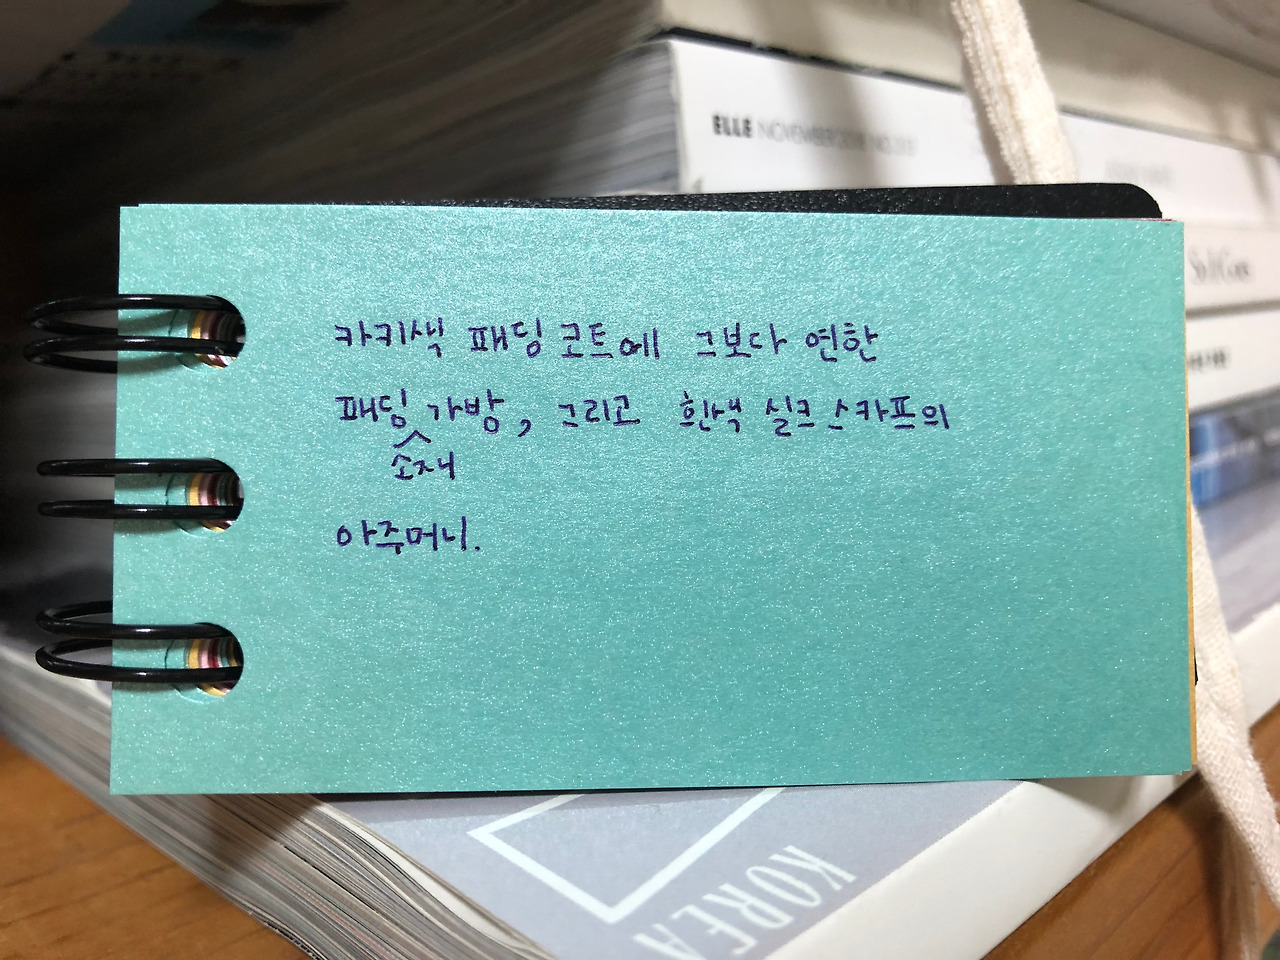 ELLE NOVEMBER
카키색 패딩 코트에 그보다 연한
패딩 가방, 그리고 흰색 실크 스카프의
소재
아주머니.
KOREA